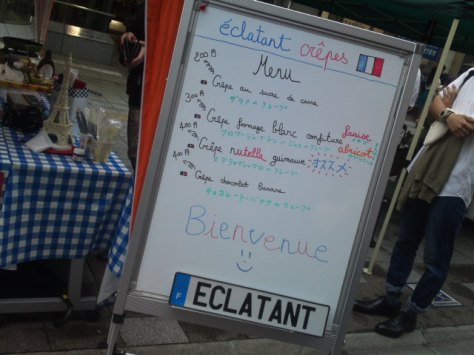 éclatant crêpes
Menu
200円
Crêpe au sucre de canne
300円
Crêpe fromage blanc confiture fraise
abricot
400円
Crêpe nutella guimauve オススメ
400円
Crêpe chocolat banane
チョコレート・バナナのクレープ
Bienvenue
F ECLATANT